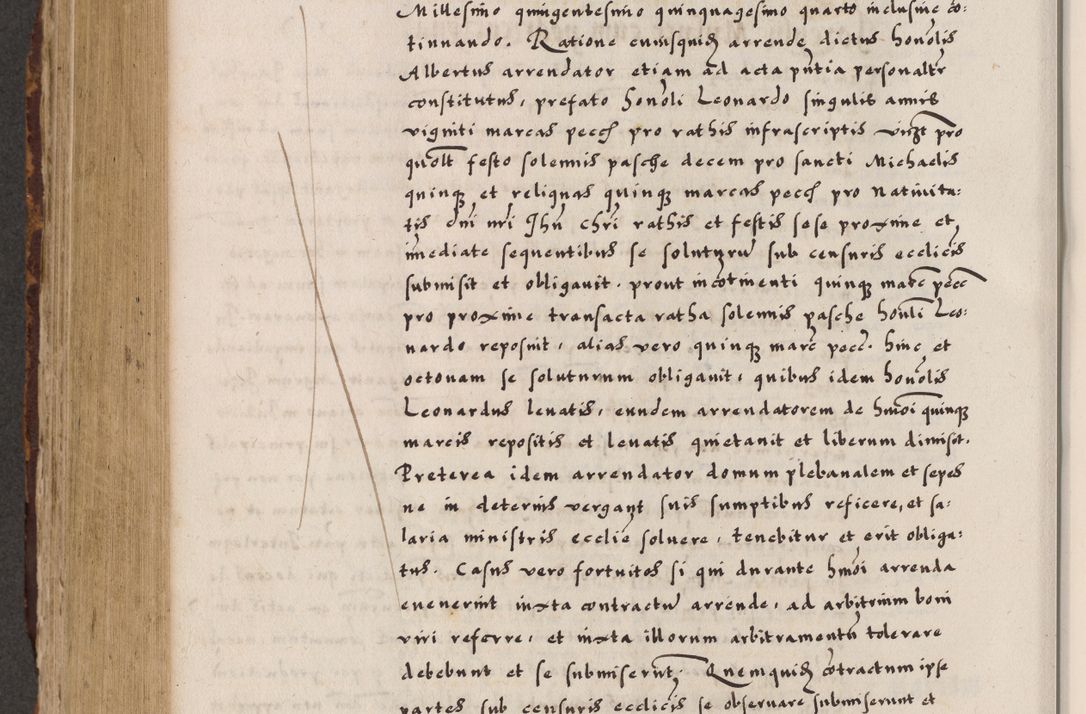 Millesimo quingentesimo quinquagesimo quarto inclusiue cō:
tinuando. Ratione cuiusquidē arrendę dictus honōlis
Albertus arrendator etiam ad acta pn̄tia personalr̄
constitutus, prefato honōli Leonardo singulis annis
viginti marcas pecc̄ pro rathis infrascriptis vidzt pro
quolt festo solennis pasche decem pro sancti Michaelis
quinqȝ et reliquas quinqȝ marcas pecc̄ pro Natiuita:
tis dn̄i nr̄i Jhū chr̄i rathis et festis sese proxime et
im̄ediate sequentibus se soluturū sub censuris ecclicis
submisit et obligauit. prout incōtinenti quinqȝ marc̄ pecc̄
pro proxime transacta ratha solennis pasche honōli Leo:
nardo reposuit, alias vero quinqȝ marc̄ pecc̄. hinc et
octonam se soluturum obligauit, quibus idem honōlis
Leonardus leuatis, eundem arrendatorem de hmōi quinqȝ
marcis repositis et leuatis quietauit et liberum dimisit.
Preterea idem arrendator domum plebanalem et sepes
ne in deterius vergant suis sumptibus reficere, et sa:
laria ministris ecclie soluere, tenebitur et erit obliga:
tus. Casus vero fortuitos si qui durante hmōi arrenda
euenerint iuxta contractū arrendę, ad arbitrium boni
viri referre, et iuxta illorum arbitramentū tolerare
debebunt et se submiserunt. Quemquidē cōtractum ipse
partes sub censuris ecclicis se obseruare submiserunt et